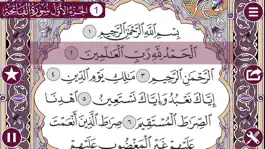 1 الجزء الأول سورة الفاتحة
بِسْمِ اللَّهِ الرَّحْمَٰنِ الرَّحِيمِ ١
الْحَمْدُ لِلَّهِ رَبِّ الْعَالَمِينَ ٢
الرَّحْمَٰنِ الرَّحِيمِ ٣ مَالِكِ يَوْمِ الدِّينِ ٤
إِيَّاكَ نَعْبُدُ وَإِيَّاكَ نَسْتَعِينُ ٥ اهْدِنَا
الصِّرَاطَ الْمُسْتَقِيمَ ٦ صِرَاطَ الَّذِينَ أَنْعَمْتَ
عَلَيْهِمْ غَيْرِ الْمَغْضُوبِ عَلَيْهِمْ